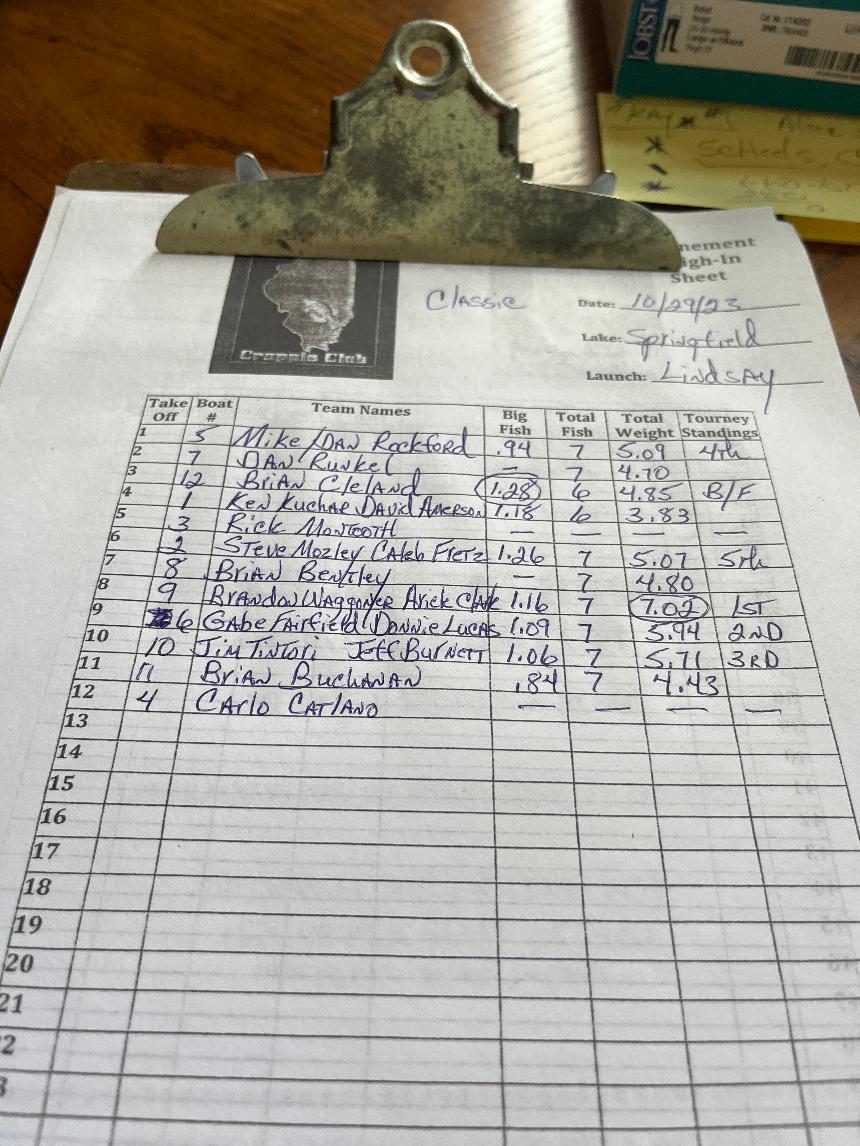 JOBST
nement
igh-In
Sheet
Classic
Date: 10/29/23
Lake: Springfield
Launch: LINDSAY
Crappie Club
Take Off Boat # Team Names Big Fish Total Fish Total Weight Tourney Standings
1 5 Mike/DAN Rockford .94 7 5.09 4th
2 7 DAN Runkel — 7 4.70
3 12 BriAN Cleland 1.28 6 4.85 B/F
4 1 Ken Kuchar David Amerson 1.18 6 3.83
5 3 Rick Monteoth — — — —
6 2 Steve Mozley Caleb Fretz 1.26 7 5.07 5th
7 8 BriAN Bentley — 7 4.80
8 9 BrANdoN WAggoNer Arick Clark 1.16 7 7.02 1ST
9 6 GAbe FAirfield/DoNNie LucAs 1.09 7 5.94 2ND
10 10 Jim TiNTori Jeff BurNeTT 1.06 7 5.71 3RD
11 11 BriAN BuchANAN .84 7 4.43
12 4 CArlo CATlANO — — — —
13
14
15
16
17
18
19
20
21
2
3